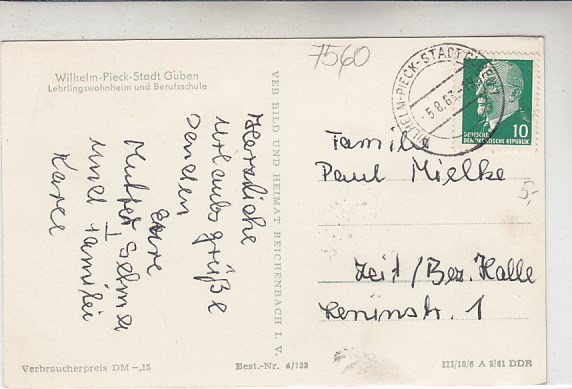 7560
Wilhelm-Pieck-Stadt Guben
Lehrlingswohnheim und Berufsschule
Herzliche
Urlaubsgrüße
senden
eure
Mutter Selma
und Familie
VEB BILD UND HEIMAT REICHENBACH I. V.
WILHELM-PIECK-STADT GUBEN 1
5.8.63
10
DEUTSCHE
DEMOKRATISCHE REPUBLIK
Familie
Paul Mielke
5,-
Zeit/Bez. Halle
Leninstr. 1
Verbraucherpreis DM -,15
Best.-Nr. 6/132
III/18/6 A 3/61 DDR